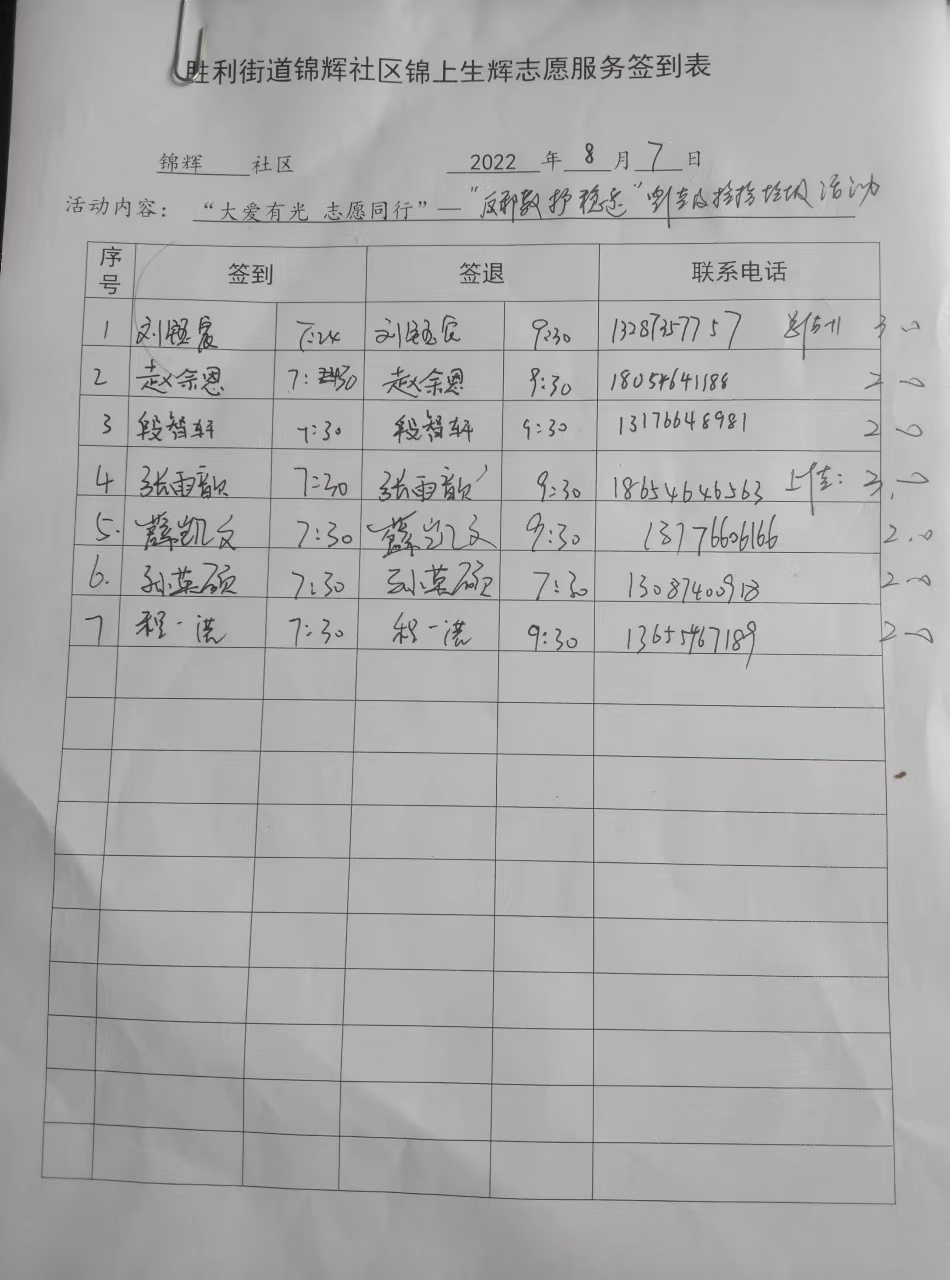 胜利街道锦辉社区锦上生辉志愿服务签到表
锦辉 社区 2022 年 8 月 7 日
活动内容： “大爱有光 志愿同行”—“反邪教 活动
序号 签到 签退 联系电话
1 7:24 9:30 13287357757 3.0
2 赵余恩 7:30 赵余恩 9:30 18054641188 2.0
3 段智轩 7:30 段智轩 9:30 13176648981 2.0
4 张雨歆 7:30 张雨歆 9:30 18654646563 3.0
5. 薛凯文 7:30 薛凯文 9:30 2.0
6. 孙英硕 7:30 孙英硕 7:30 13087400918 2.0
7 程一洪 7:30 程一洪 9:30 13655467189 2.0